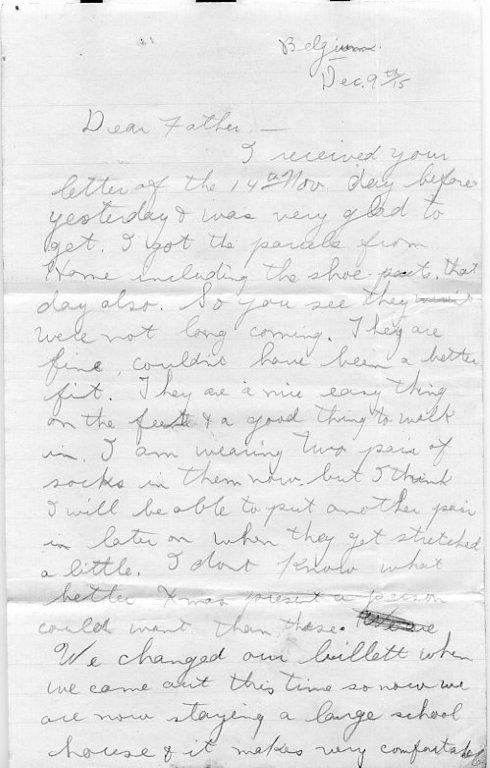 Belgium.
Dec. 9th/15
Dear Father. —
I received your
letter of the 14th Nov day before
yesterday & was very glad to
get. I got the parcels from
Home including the shoe pacts, that
day also. So you see they
were not long coming. They are
fine, couldn't have been a better
fit. They are a nice easy thing
on the feet & a good thing to walk
in. I am wearing two pair of
socks in them now, but I think
I will be able to put another pair
in later on when they get stretched
a little. I dont know what
better Xmas present a person
could want than these. We are
We changed our billett when
we came out this time so now we
are now staying a large school
house & it makes very comfortable